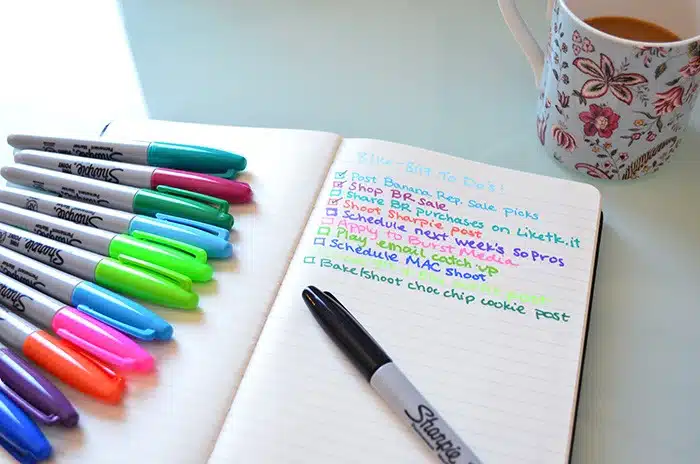 To Do's!
Post Banana Rep. Sale picks
Shop BR sale
Share BR purchases on Liketk.it
Shoot Sharpie post
Schedule next week's SoPros
Apply to Burst Media
Play email catch-up
Schedule MAC shoot
Bake/shoot choc chip cookie post
Sharpie
Sharpie
Sharpie
Sharpie
Sharpie
Sharpie
Sharpie
Sharpie
Sharpie